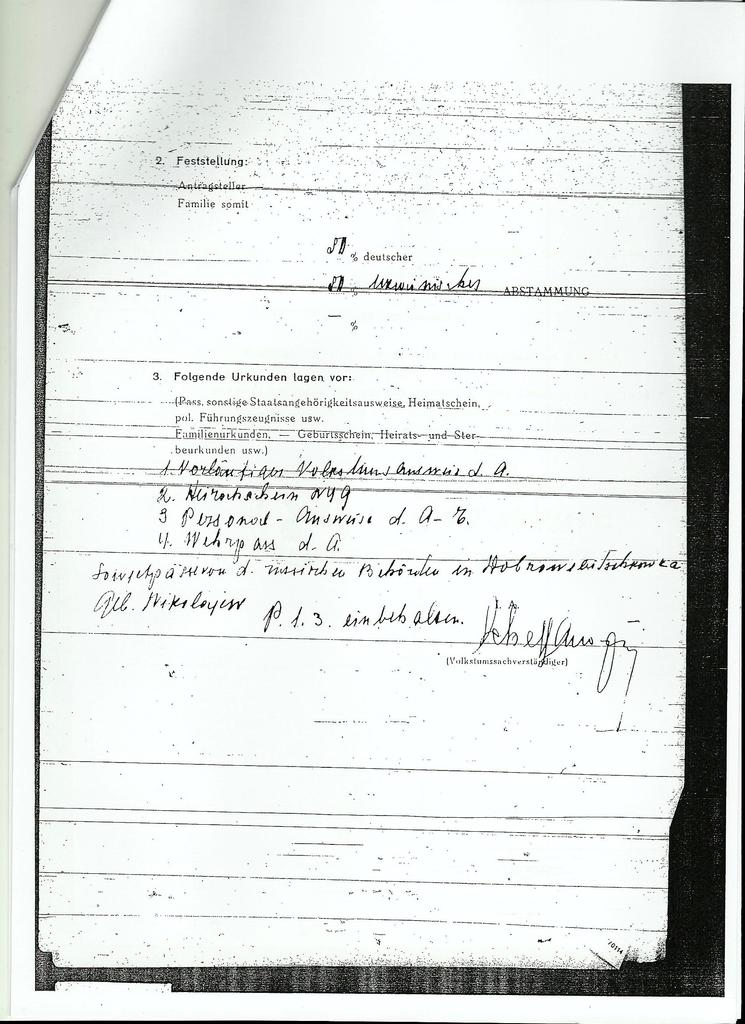 2. Feststellung:
Antragsteller
Familie somit
50 % deutscher
50 % ukrainischer ABSTAMMUNG
— %
3. Folgende Urkunden lagen vor:
(Pass, sonstige Staatsangehörigkeitsausweise, Heimatschein,
pol. Führungszeugnisse usw.
Familienurkunden, — Geburtsschein, Heirats- und Ster-
beurkunden usw.)
1. Vorläufiger Volkstumsausweis d. A.
2.
3 Personal - Ausweise d. A-
4. Wehrpass d. A.
Sowjetpässe von d. russischen Behörden in
Geb. Nikolajew
P. 1. 3. einbehalten.
I. A.
(Volkstumssachverständiger)